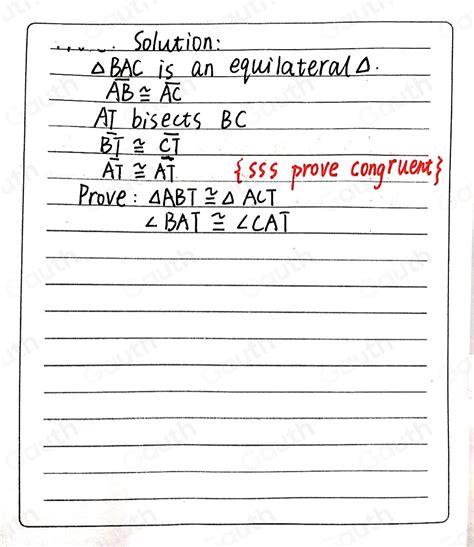 Solution:
△BAC is an equilateral △.
A̅B̅ ≅ A̅C̅
AT bisects BC
B̅T̅ ≅ C̅T̅
A̅T̅ ≅ A̅T̅ {sss prove congruent}
Prove: △ABT ≅ △ ACT
∠BAT ≅ ∠CAT